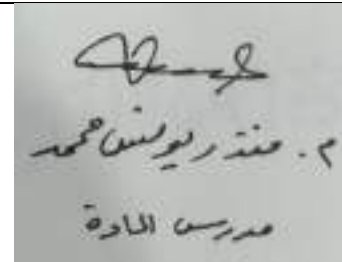 م. منذر يونس محمد
مدرس المادة